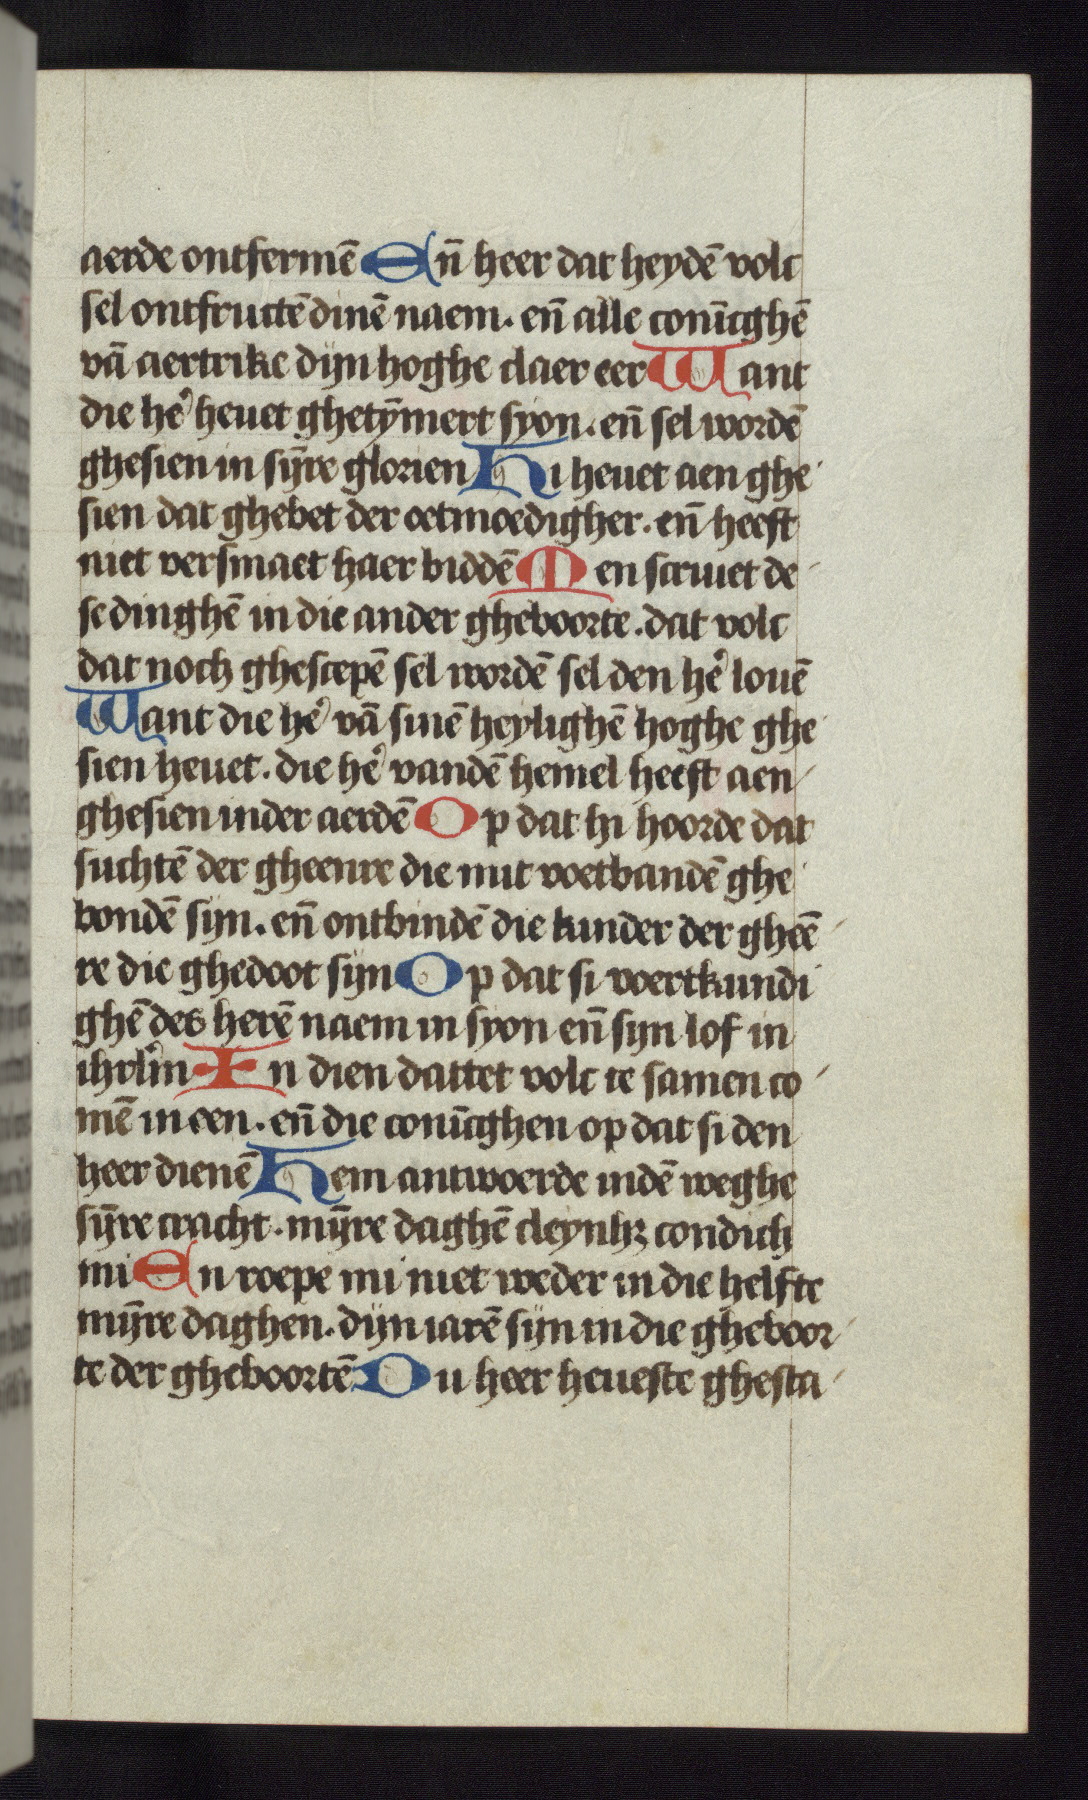 aerde ontfermē En̄ heer dat heydē volc
sel ontfructē dinē naem. en̄ alle conīcghē
vā aertrike dijn hoghe claer eer Want
die hē heuet ghetȳmert syon. en̄ sel wordē
ghesien in sȳre glorien Hi heuet aen ghe
sien dat ghebet der oetmoedigher. en̄ heeft
niet versmaet haer biddē Men scriuet de
se dinghē in die ander gheboorte. dat volc
dat noch ghescepē sel wordē sel den hē louē
Want die hē vā sinē heylighē hoghe ghe
sien heuet. die hē vandē hemel heeft aen
ghesien inder aerdē Op dat hi hoorde dat
suchtē der gheenre die mit voetbandē ghe
bondē sijn. en̄ ontbindē die kinder der gheē
re die ghedoot sijn Op dat si voertkundi
ghē des herē naem in syon en̄ sijn lof in
ihrlm̄ In dien dattet volc te samen co
mē in een. en̄ die conīcghen op dat si den
heer dienē Hem antwoerde indē weghe
sȳre cracht. mȳre daghē cleynhꝫ condich
mi En roepe mi niet weder in die helfte
mȳre daghen. dijn iarē sijn in die gheboor
te der gheboortē Du heer heueste ghesta